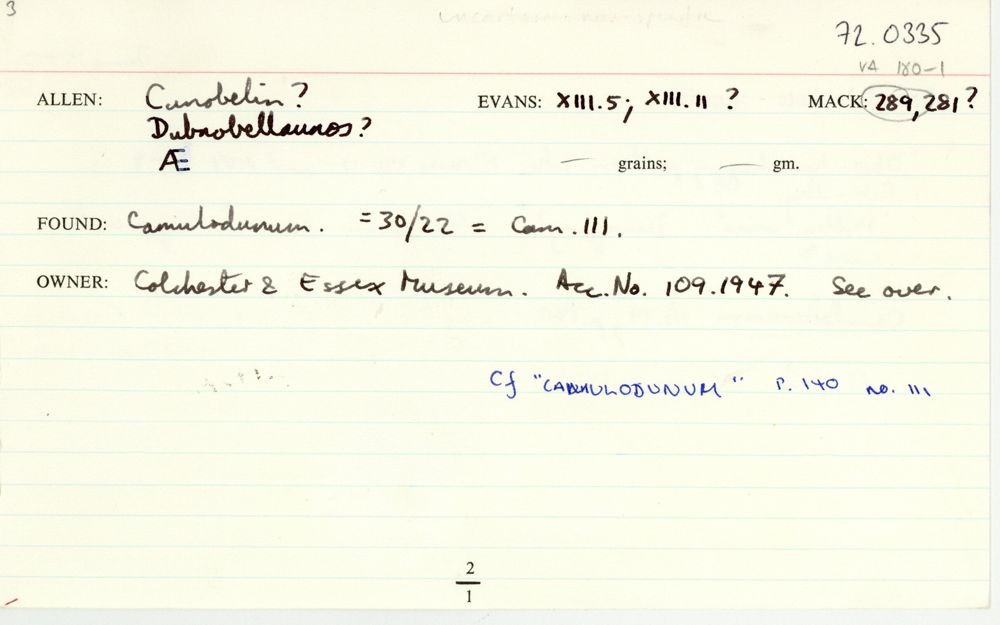 3
72.0335
VA 180-1
ALLEN: Cunobelin? EVANS: XIII.5; XIII.11? MACK: 289, 281?
Dubnobellaunos?
Æ — grains; — gm.
FOUND: Camulodunum. = 30/22 = Cam. 111.
OWNER: Colchester & Essex Museum. Acc. No. 109.1947. See over.
Cf "CAMULODUNUM" P. 140 no. 111
2
1